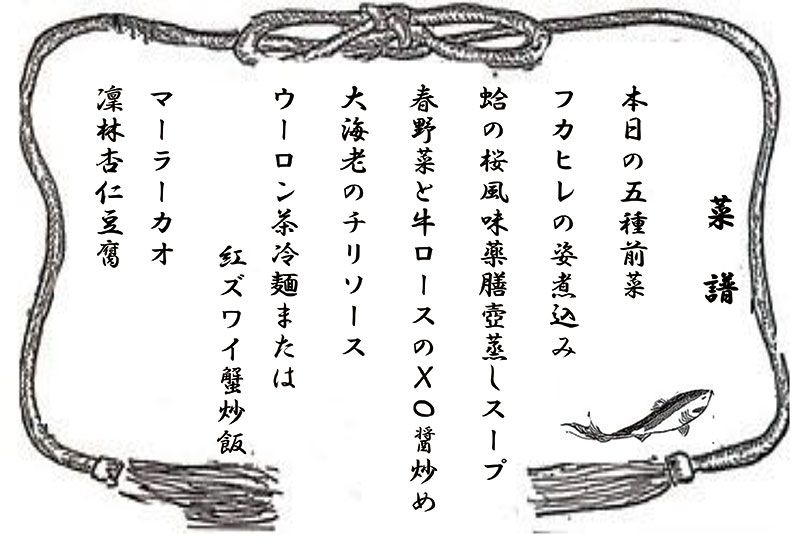 菜譜
本日の五種前菜
フカヒレの姿煮込み
蛤の桜風味薬膳壺蒸しスープ
春野菜と牛ロースのXO醤炒め
大海老のチリソース
ウーロン茶冷麺または
紅ズワイ蟹炒飯
マーラーカオ
凜林杏仁豆腐